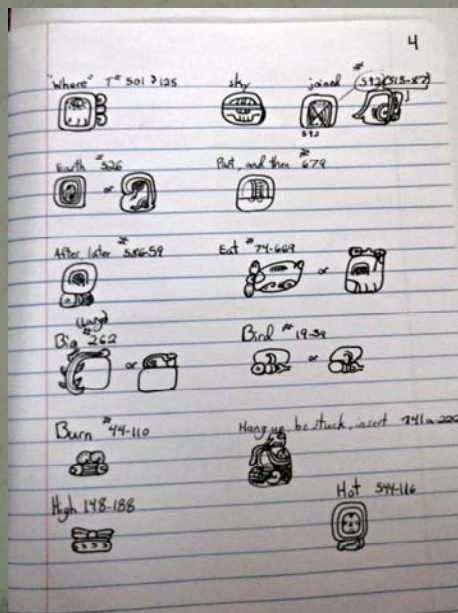 4
"Where" T# 501 > 125
sky
joined
# 592 (515-87)
592
Earth # 526
or
Past, and then # 679
After, later # 586-59
Eat # 74-669
or
(large)
Big # 262
or
Bird # 19-39
or
Burn # 44-110
Hang up, be stuck, insert
High 148-188
Hot 544-116